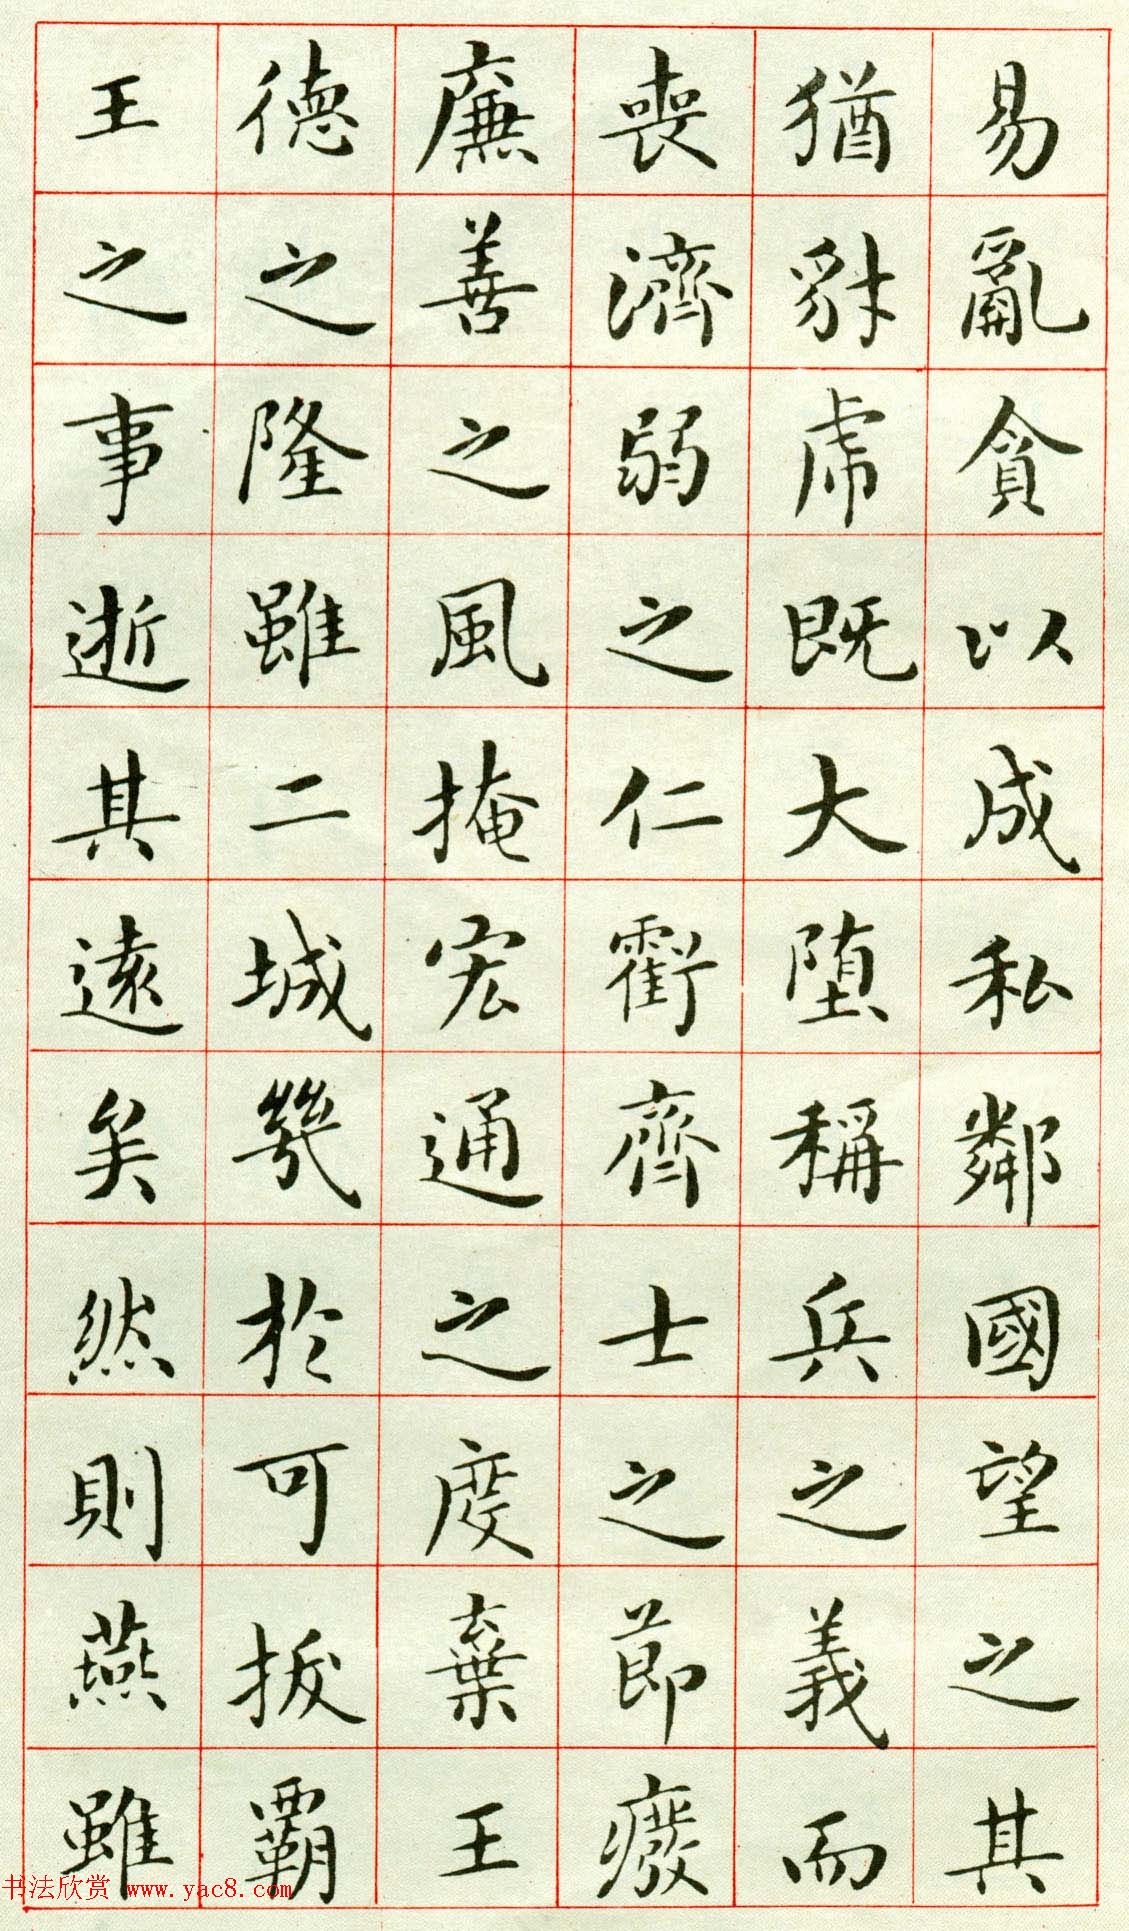 易亂貪以成私鄰國望之其
猶豺虎既大墮稱兵之義而
喪濟弱之仁虧齊士之節癈
廉善之風掩宏通之度棄王
德之隆雖二城幾於可拔霸
王之事逝其遠矣然則燕雖
书法欣赏 www.yac8.com